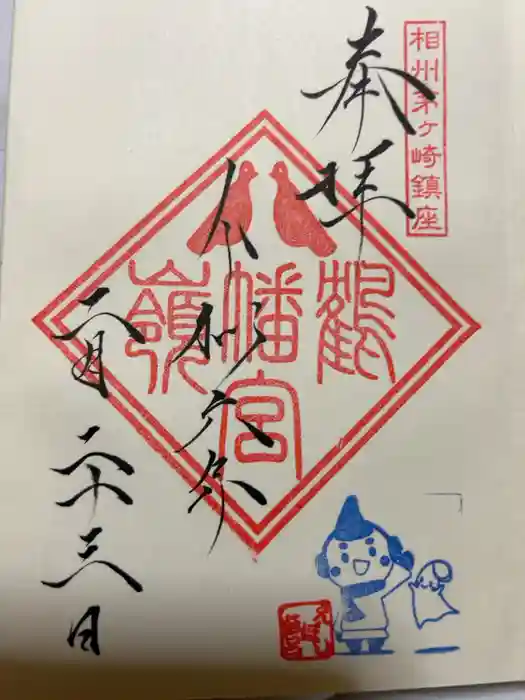 相州茅ヶ崎鎮座
奉拝
鶴嶺八幡宮
令和六年
二月二十三日